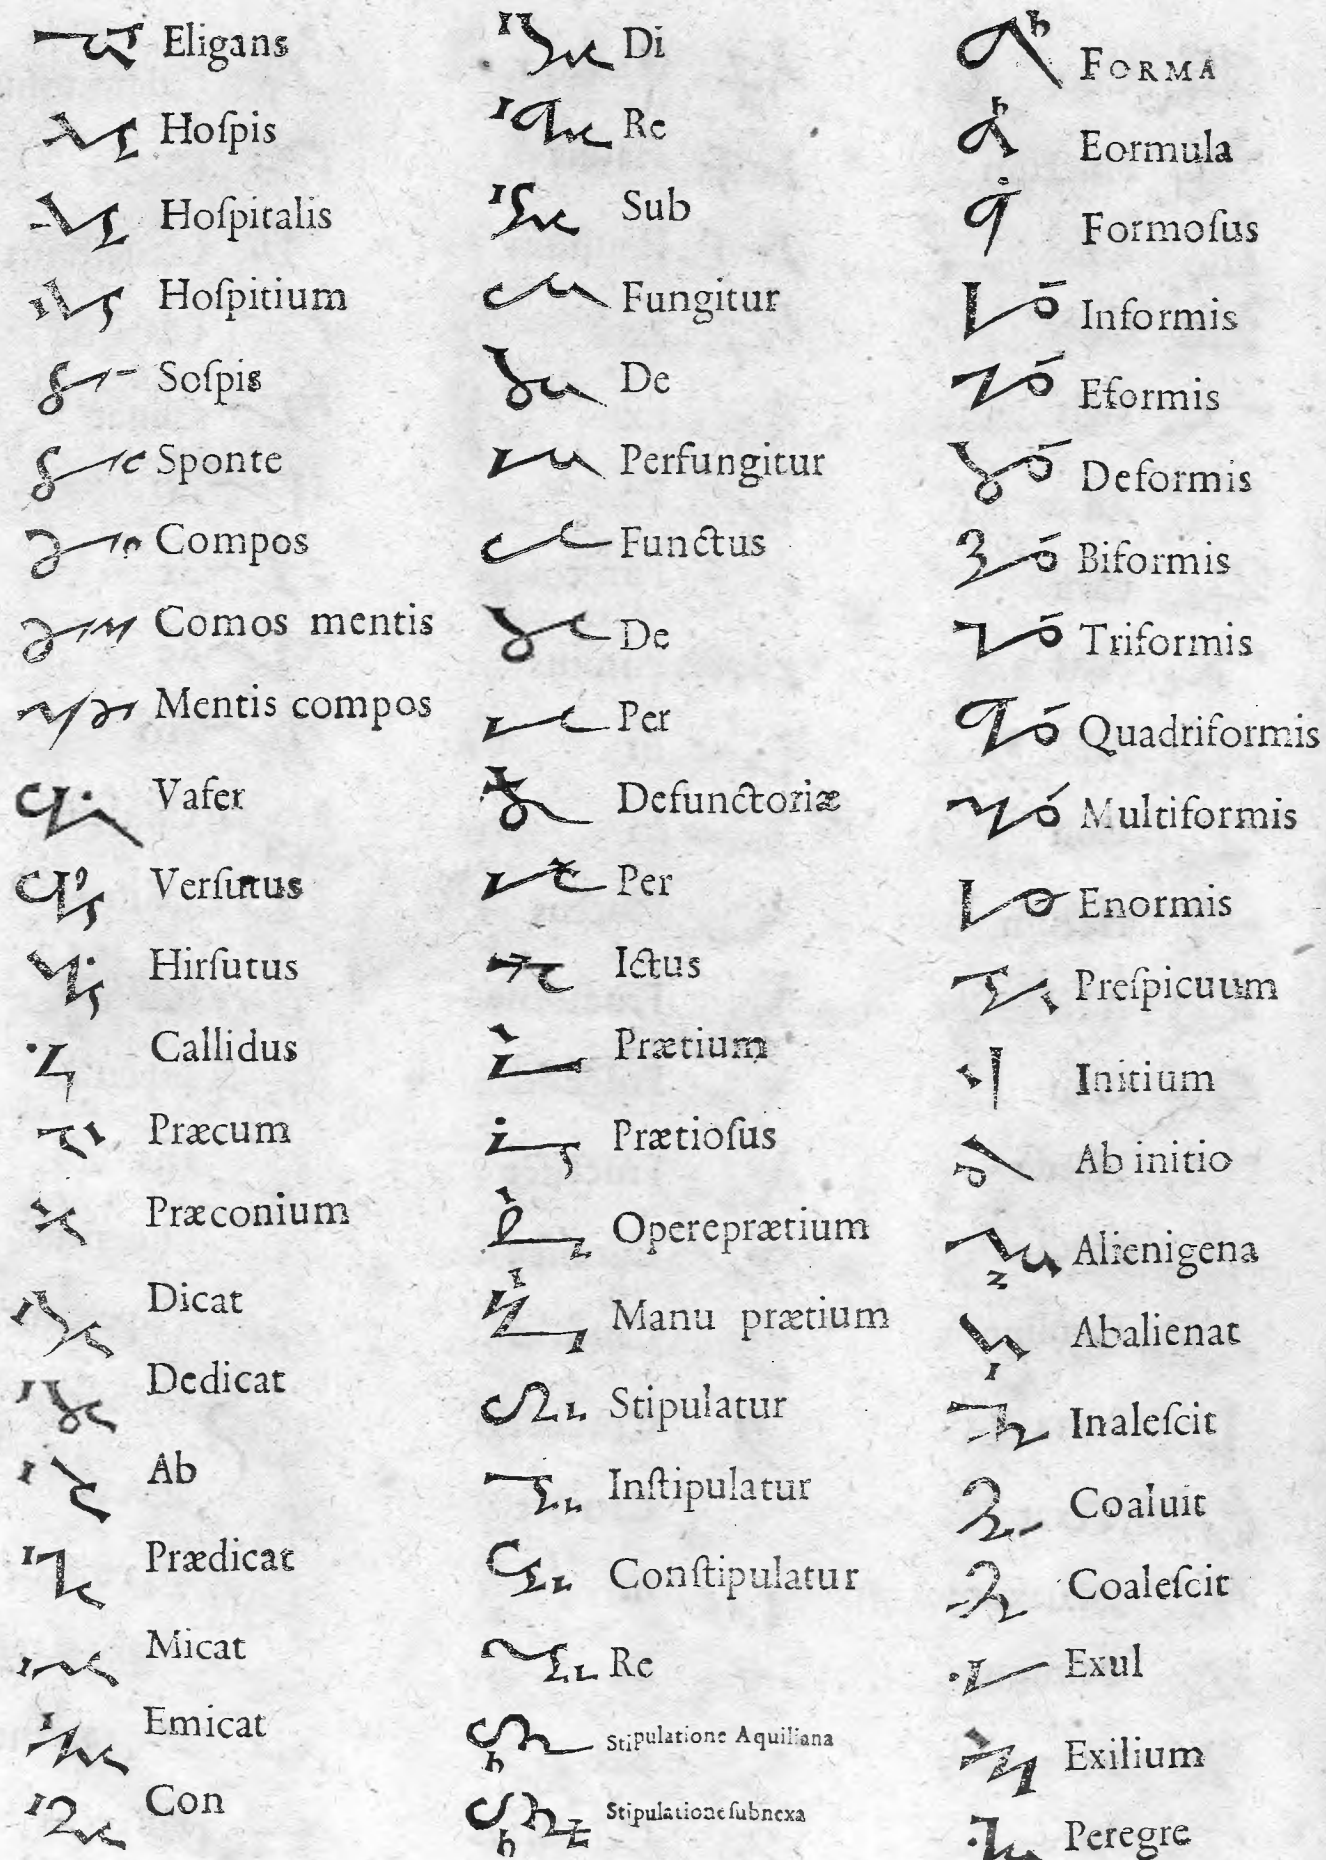 Eligans
Hoſpis
Hoſpitalis
Hoſpitium
Soſpis
Sponte
Compos
Comos mentis
Mentis compos
Vafer
Verſutus
Hirſutus
Callidus
Præcum
Præconium
Dicat
Dedicat
Ab
Prædicat
Micat
Emicat
Con
Di
Re
Sub
Fungitur
De
Perfungitur
Functus
De
Per
Defunctoriæ
Per
Ictus
Prætium
Prætioſus
Opereprætium
Manu prætium
Stipulatur
Inſtipulatur
Conſtipulatur
Re
Stipulatione Aquiliana
Stipulationeſubnexa
FORMA
Eormula
Formoſus
Informis
Eformis
Deformis
Biformis
Triformis
Quadriformis
Multiformis
Enormis
Preſpicuum
Initium
Ab initio
Alienigena
Abalienat
Inaleſcit
Coaluit
Coaleſcit
Exul
Exilium
Peregre